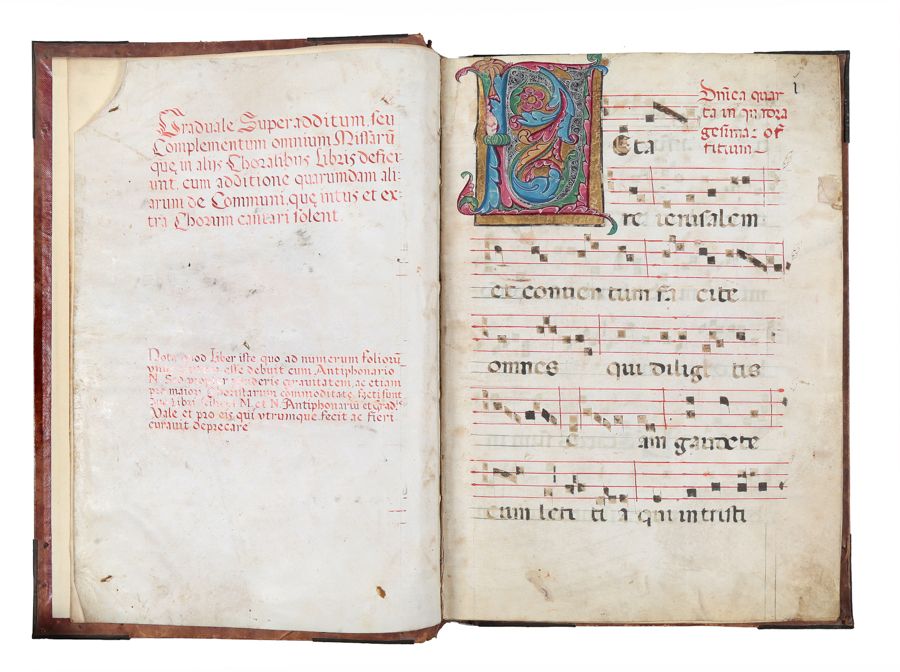 Graduale Superadditum, seu
Complementum omnium Missarū
que, in alijs Choralibus Libris defici-
unt, cum additione quarumdam ali-
arum de Communi, que, intus et ex-
tra Chorum cantari solent.
Nota quod Liber iste quo ad numerum foliorū
esse debuit cum Antiphonario
N. ponderis gravitatem, ac etiam
maiorem Choristarum commoditate, facti sunt
duo libri M. et N. Antiphonariū et Gradu-
vale et pro eis qui utrumque fecit ac fieri
curavit deprecare
1
Dn̄ica quar
ta in quadra
gesima: of
titium
Leta
re ierusalem
et conven tum fa cite
omnes qui diligi tis
e am gaudete
cum leti ti a qui in tristi